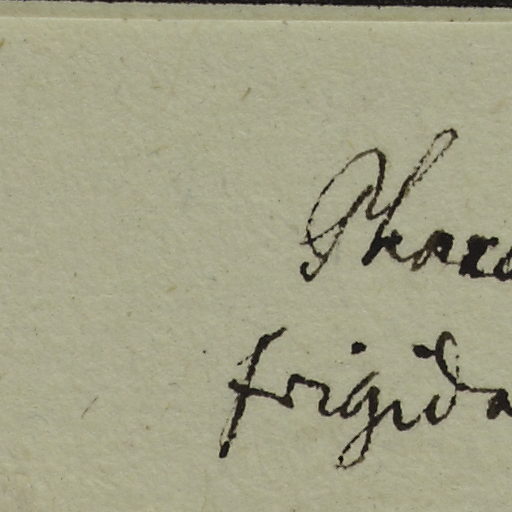 Phaca
frigida